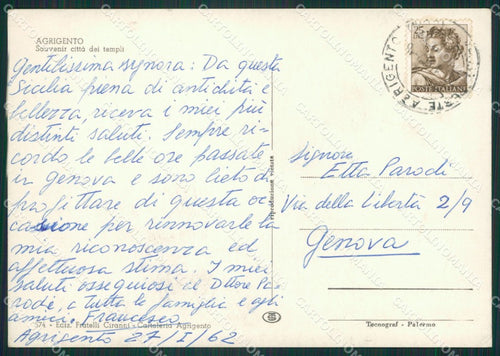 AGRIGENTO
Souvenir città dei templi
Gentilissima signora: Da questa
Sicilia piena di antichità e
bellezza, riceva i miei più
distinti saluti. Sempre ri-
cordo le belle ore passate
in genova e sono lieto di
profittare di questa oc-
casione per rinnovarle la
mia riconoscenza ed
affettuosa stima. I miei
saluti ossequiosi al Dottore Pa-
rodi, a tutta la famiglia e agli
amici. Francesco
574 - Ediz. Fratelli Ciranni - Cartoleria Agrigento
Agrigento 27/I/62
riproduzione vietata
POSTE ITALIANE
AGRIGENTO
Signora
Etta Parodi
Via della Libertà 2/9
Genova
Tecnograf - Palermo
CARTOLINOMANIA